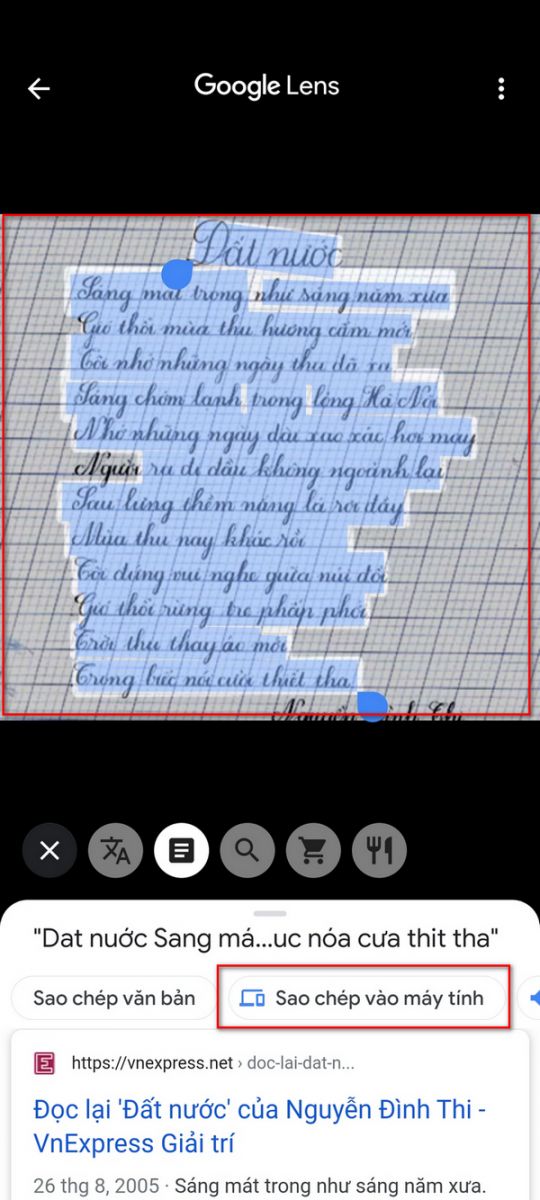 Google Lens
Đất nước
Sáng mát trong như sáng năm xưa
Gió thổi mùa thu hương cốm mới
Tôi nhớ những ngày thu đã xa
Sáng chớm lạnh trong lòng Hà Nội
Những ngày dài xao xác hơi may
Người ra đi đầu không ngoảnh lại
Sau lưng thềm nắng lá rơi đầy
Mùa thu nay khác rồi
Tôi đứng vui nghe giữa núi đồi
Gió thổi rừng tre phấp phới
Trời thu thay áo mới
Trong biếc nói cười thiết tha
Nguyễn Đình Thi
"Dat nuớc Sang má...uc nóa cưa thit tha"
Sao chép văn bản
Sao chép vào máy tính
https://vnexpress.net › doc-lai-dat-n...
Đọc lại 'Đất nước' của Nguyễn Đình Thi -
VnExpress Giải trí
26 thg 8, 2005 · Sáng mát trong như sáng năm xưa.